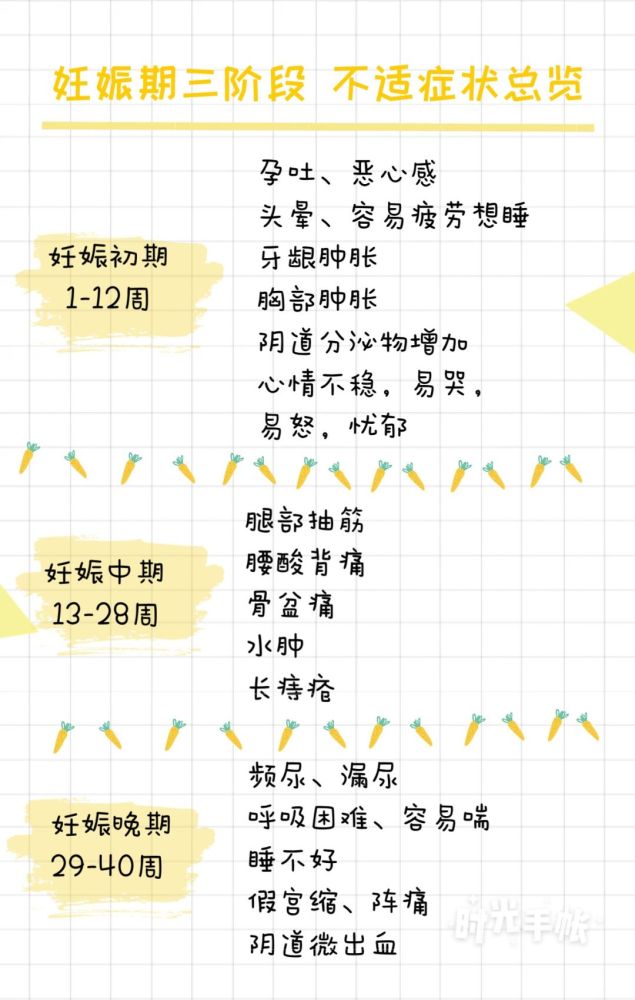 妊娠期三阶段 不适症状总览
孕吐、恶心感
头晕、容易疲劳想睡
妊娠初期
1-12周
牙龈肿胀
胸部肿胀
阴道分泌物增加
心情不稳，易哭，
易怒，忧郁
腿部抽筋
腰酸背痛
妊娠中期
13-28周
骨盆痛
水肿
长痔疮
频尿、漏尿
呼吸困难、容易喘
妊娠晚期
29-40周
睡不好
假宫缩、阵痛
阴道微出血
时光手帐